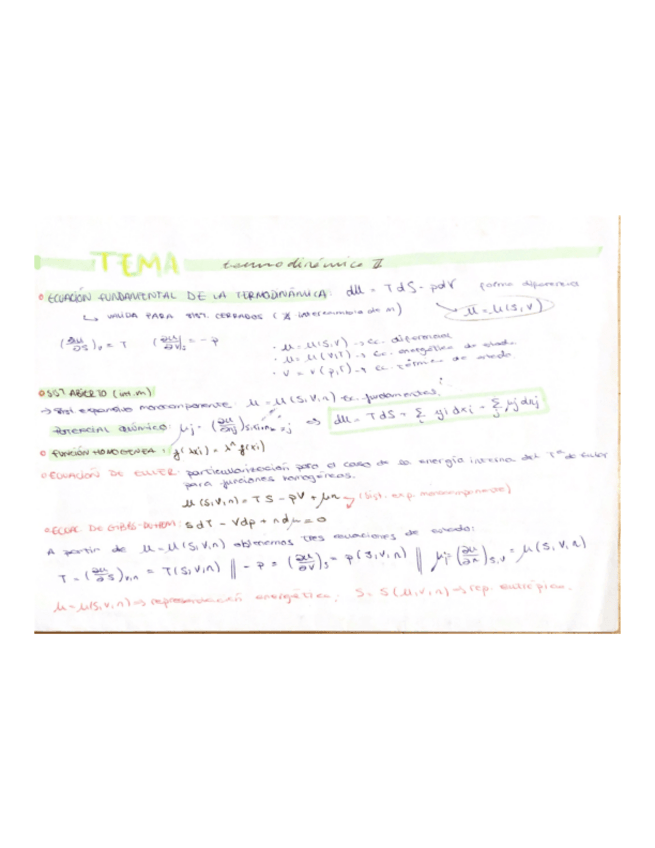 TEMA termodinámica II
ECUACIÓN FUNDAMENTAL DE LA TERMODINÁMICA: dU = TdS - pdV forma diferencial
↳ VALIDA PARA SIST. CERRADOS (∄ intercambio de m) U = U(S,V)
(∂U/∂S)v = T (∂U/∂V)s = -p · U = U(S,V) → ec. diferencial
· U = U(V,T) → Ec. energética de estado
· V = V(p,T) → Ec. térmica de estado
SIST ABIERTO (int. m)
→ Sist expansivo monocomponente: U = U(S,V,n) Ec. fundamental
POTENCIAL QUÍMICO: μj = (∂U/∂nj) ⇒ dU = TdS + Σ yi dxi - Σ μj dnj
FUNCIÓN HOMOGENEA: g(λxi) = λⁿ g(xi)
ECUACIÓN DE EULER: particularización para el caso de la energía interna del Tª de Euler
para funciones homogéneas.
U(S,V,n) = TS - pV + μn → (Sist. exp. monocomponente)
ECUAC. DE GIBBS-DUHEM: SdT - Vdp + ndμ = 0
A partir de U = U(S,V,n) obtenemos tres ecuaciones de estado:
T = (∂U/∂S)v,n = T(S,V,n) || -p = (∂U/∂V)s = p(S,V,n) || μ = (∂U/∂n)s,v = μ(S,V,n)
U = U(S,V,n) → representación energética; S = S(U,V,n) → rep. entrópica.